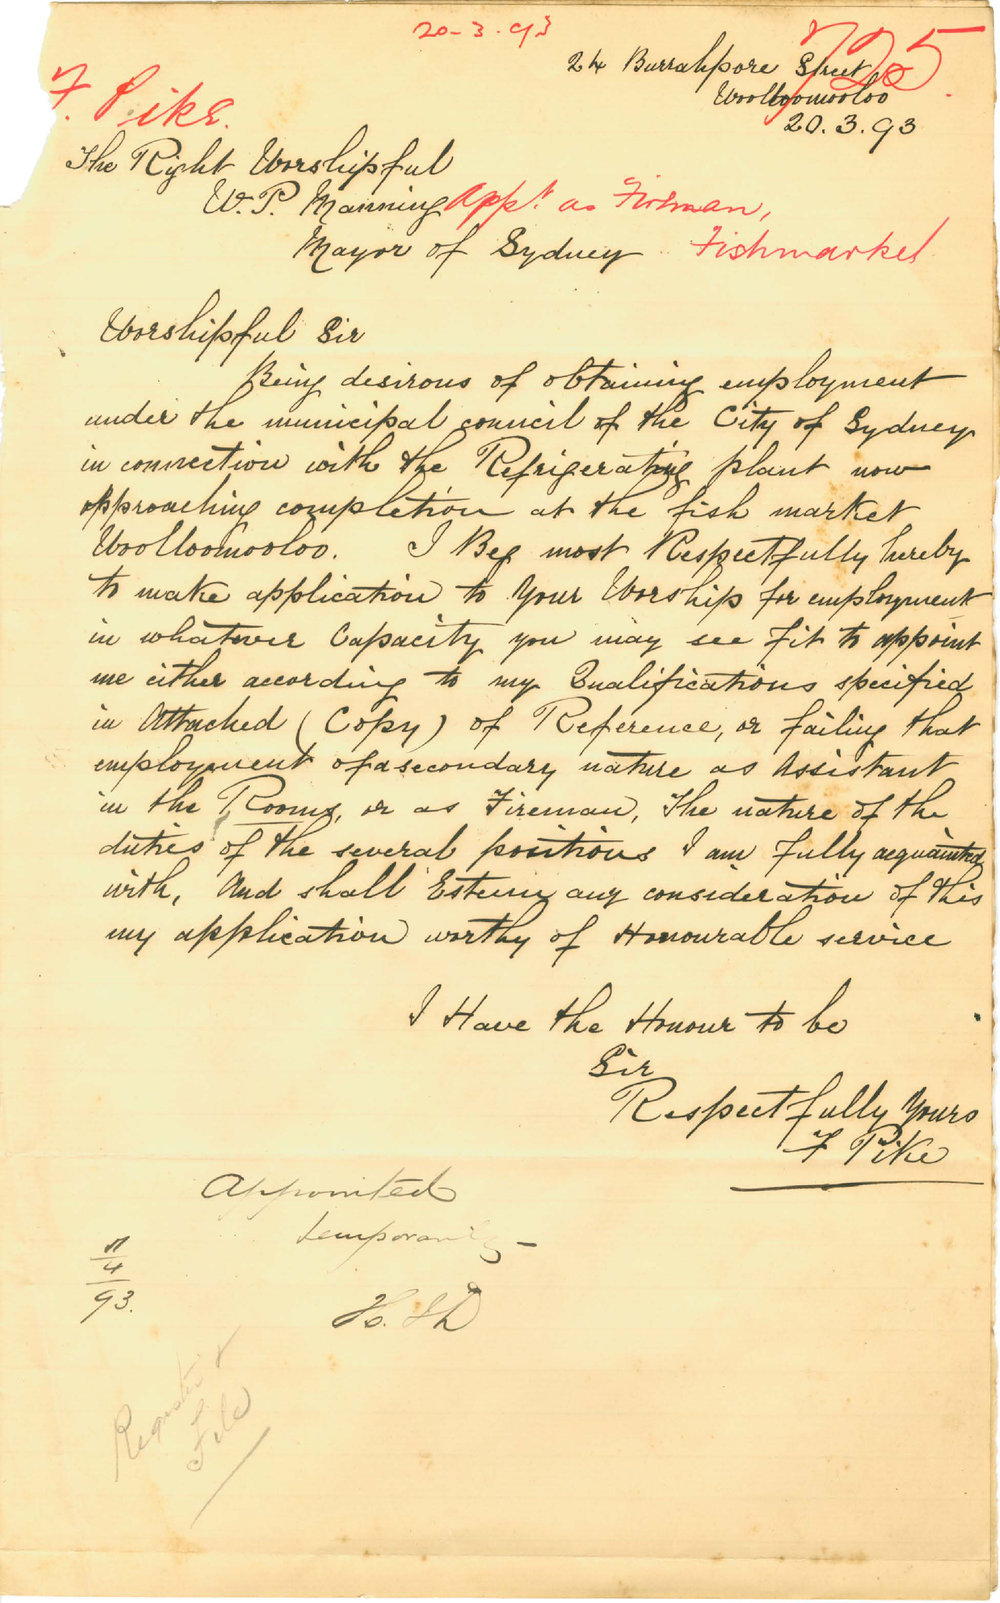 20-3.93
725
24 Burrahpore Street
Woolloomooloo
20.3.93
F. Pike.
The Right Worshipful
W. P. Manning Appt. as Fireman,
Mayor of Sydney Fishmarket
Worshipful Sir
Being desirous of obtaining employment
under the municipal council of the City of Sydney
in connection with the Refrigerating plant now
approaching completion at the fish market
Woolloomooloo. I Beg most Respectfully hereby
to make application to Your Worship for employment
in whatever Capacity you may see Fit to appoint
me either according to my Qualifications specified
in Attached (Copy) of Reference, or failing that
employment of a secondary nature as Assistant
in the Rooms, or as Fireman, The nature of the
duties of the several positions I am fully acquainted
with, And shall Esteem any consideration of this
my application worthy of Honourable service
I Have the Honour to be
Sir
Respectfully Yours
F Pike
Appointed
temporarily -
4
93.
Register &
File